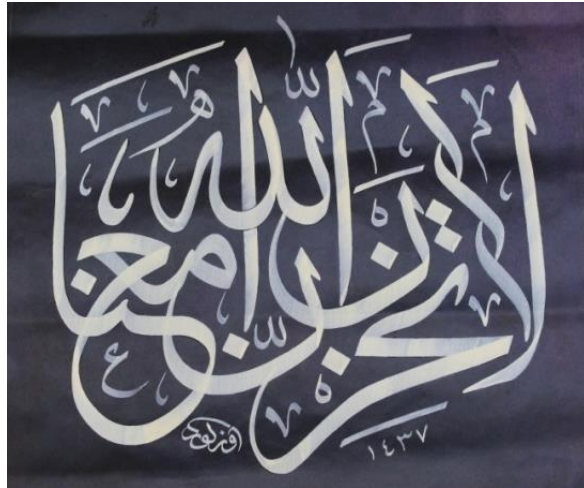 لا تحزن إن الله معنا
١٤٣٧